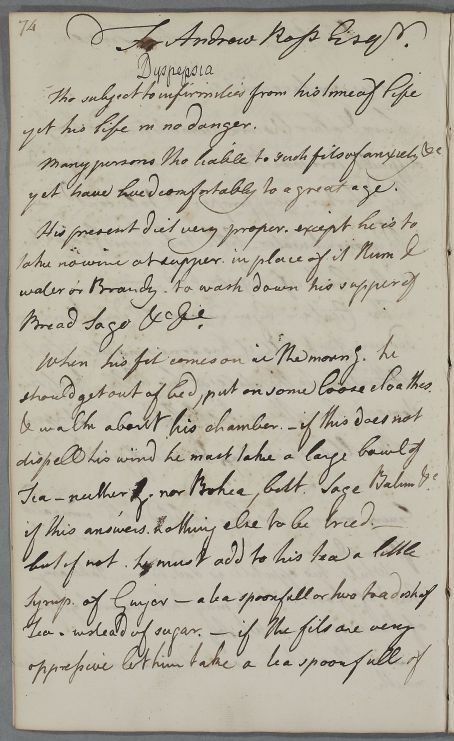 74
For Andrew Ross Esqr.
Dyspepsia
Tho subject to infirmities from his time of life
yet his life in no danger.
Many persons tho liable to such fits of anxiety &c
yet have lived comfortably to a great age.
His present diet very proper. except he is to
take no wine at supper. in place of it Rum &
water or Brandy. to wash down his supper of
Bread Sago &c &c
When his fit comes on in the morng. he
should get out of bed, put on some loose cloathes
& walk about his chamber. – if this does not
dispell his wind he must take a large bowl of
Tea – neither nor Bohea, but Sage Balm &c
if this answers. nothing else to be tried. –
but if not. he must add to his tea a little
Syrup. of Ginger – a tea spoonfull or two to a dish of
Tea. instead of sugar. – if the fits are very
oppressive let him take a tea spoonfull of